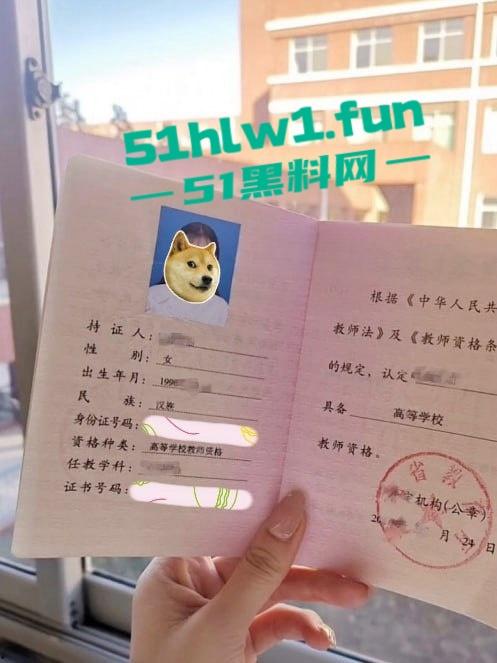 51hlw1.fun
— 51黑料网 —
持证人：
性别：女
出生年月：1996
民族：汉族
身份证号码：
资格种类：高等学校教师资格
任教学科：
证书号码：
根据《中华人民共
教师法》及《教师资格条
的规定，认定
具备 高等学校
教师资格。
省教
机构(公章)
月24日